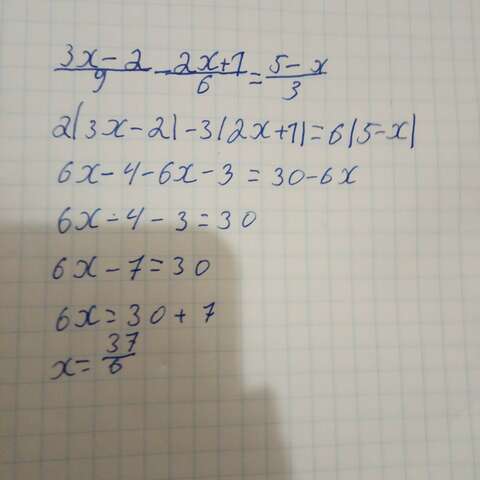 (3x-2)/9 - (2x+1)/6 = (5-x)/3
2(3x-2)-3(2x+1)=6(5-x)
6x-4-6x-3=30-6x
6x-4-3=30
6x-7=30
6x=30+7
x=37/6